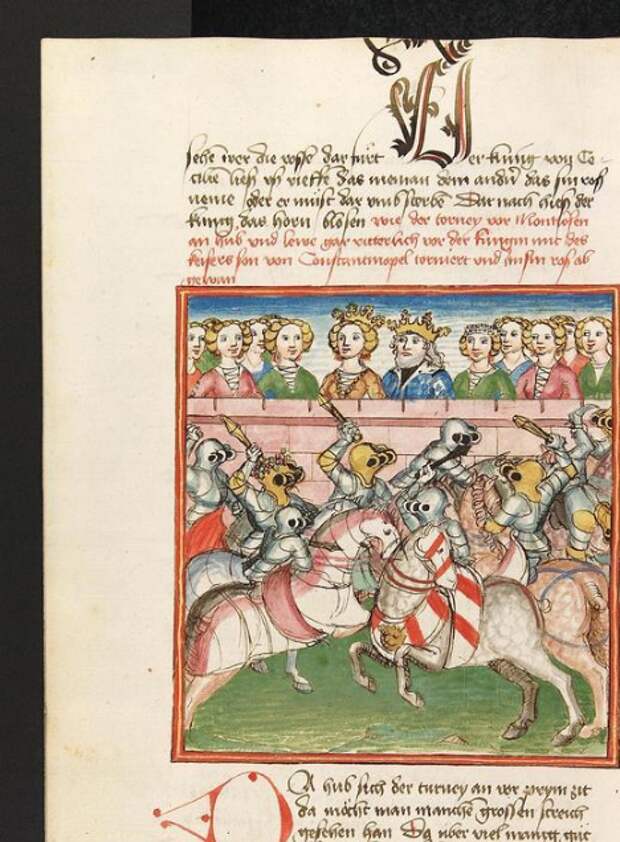 sehe wer die rosse dar fürt Der künig von Ce-
cilie lieſſ vſſ rieffe das nieman dem andrn das sin roſſ
neme oder er müst dar vmb sterbe Dar nach hieſſ der
künig das horn blosen wie der torney vor Montlosen
an hub vnd lewe gar ritterlich vor der künigin mit des
keisers son von Constantinopel torniert vnd im sin roſſ ab
gewan
DA hub sich der turney an vor prym zit
da möcht man manche grossen streich
gesehen han Da uber viel